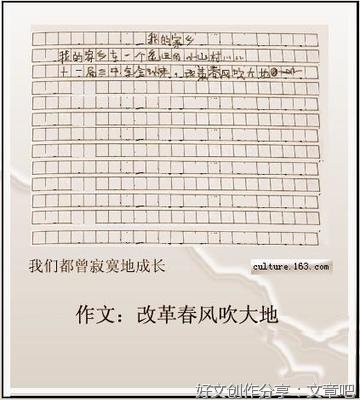 我的家乡
我的家乡在一个遥远的小山村……
十一届三中全会以来,改革春风吹大地
我们都曾寂寞地成长
culture.163.com
作文:改革春风吹大地
好文创作分享:文章吧